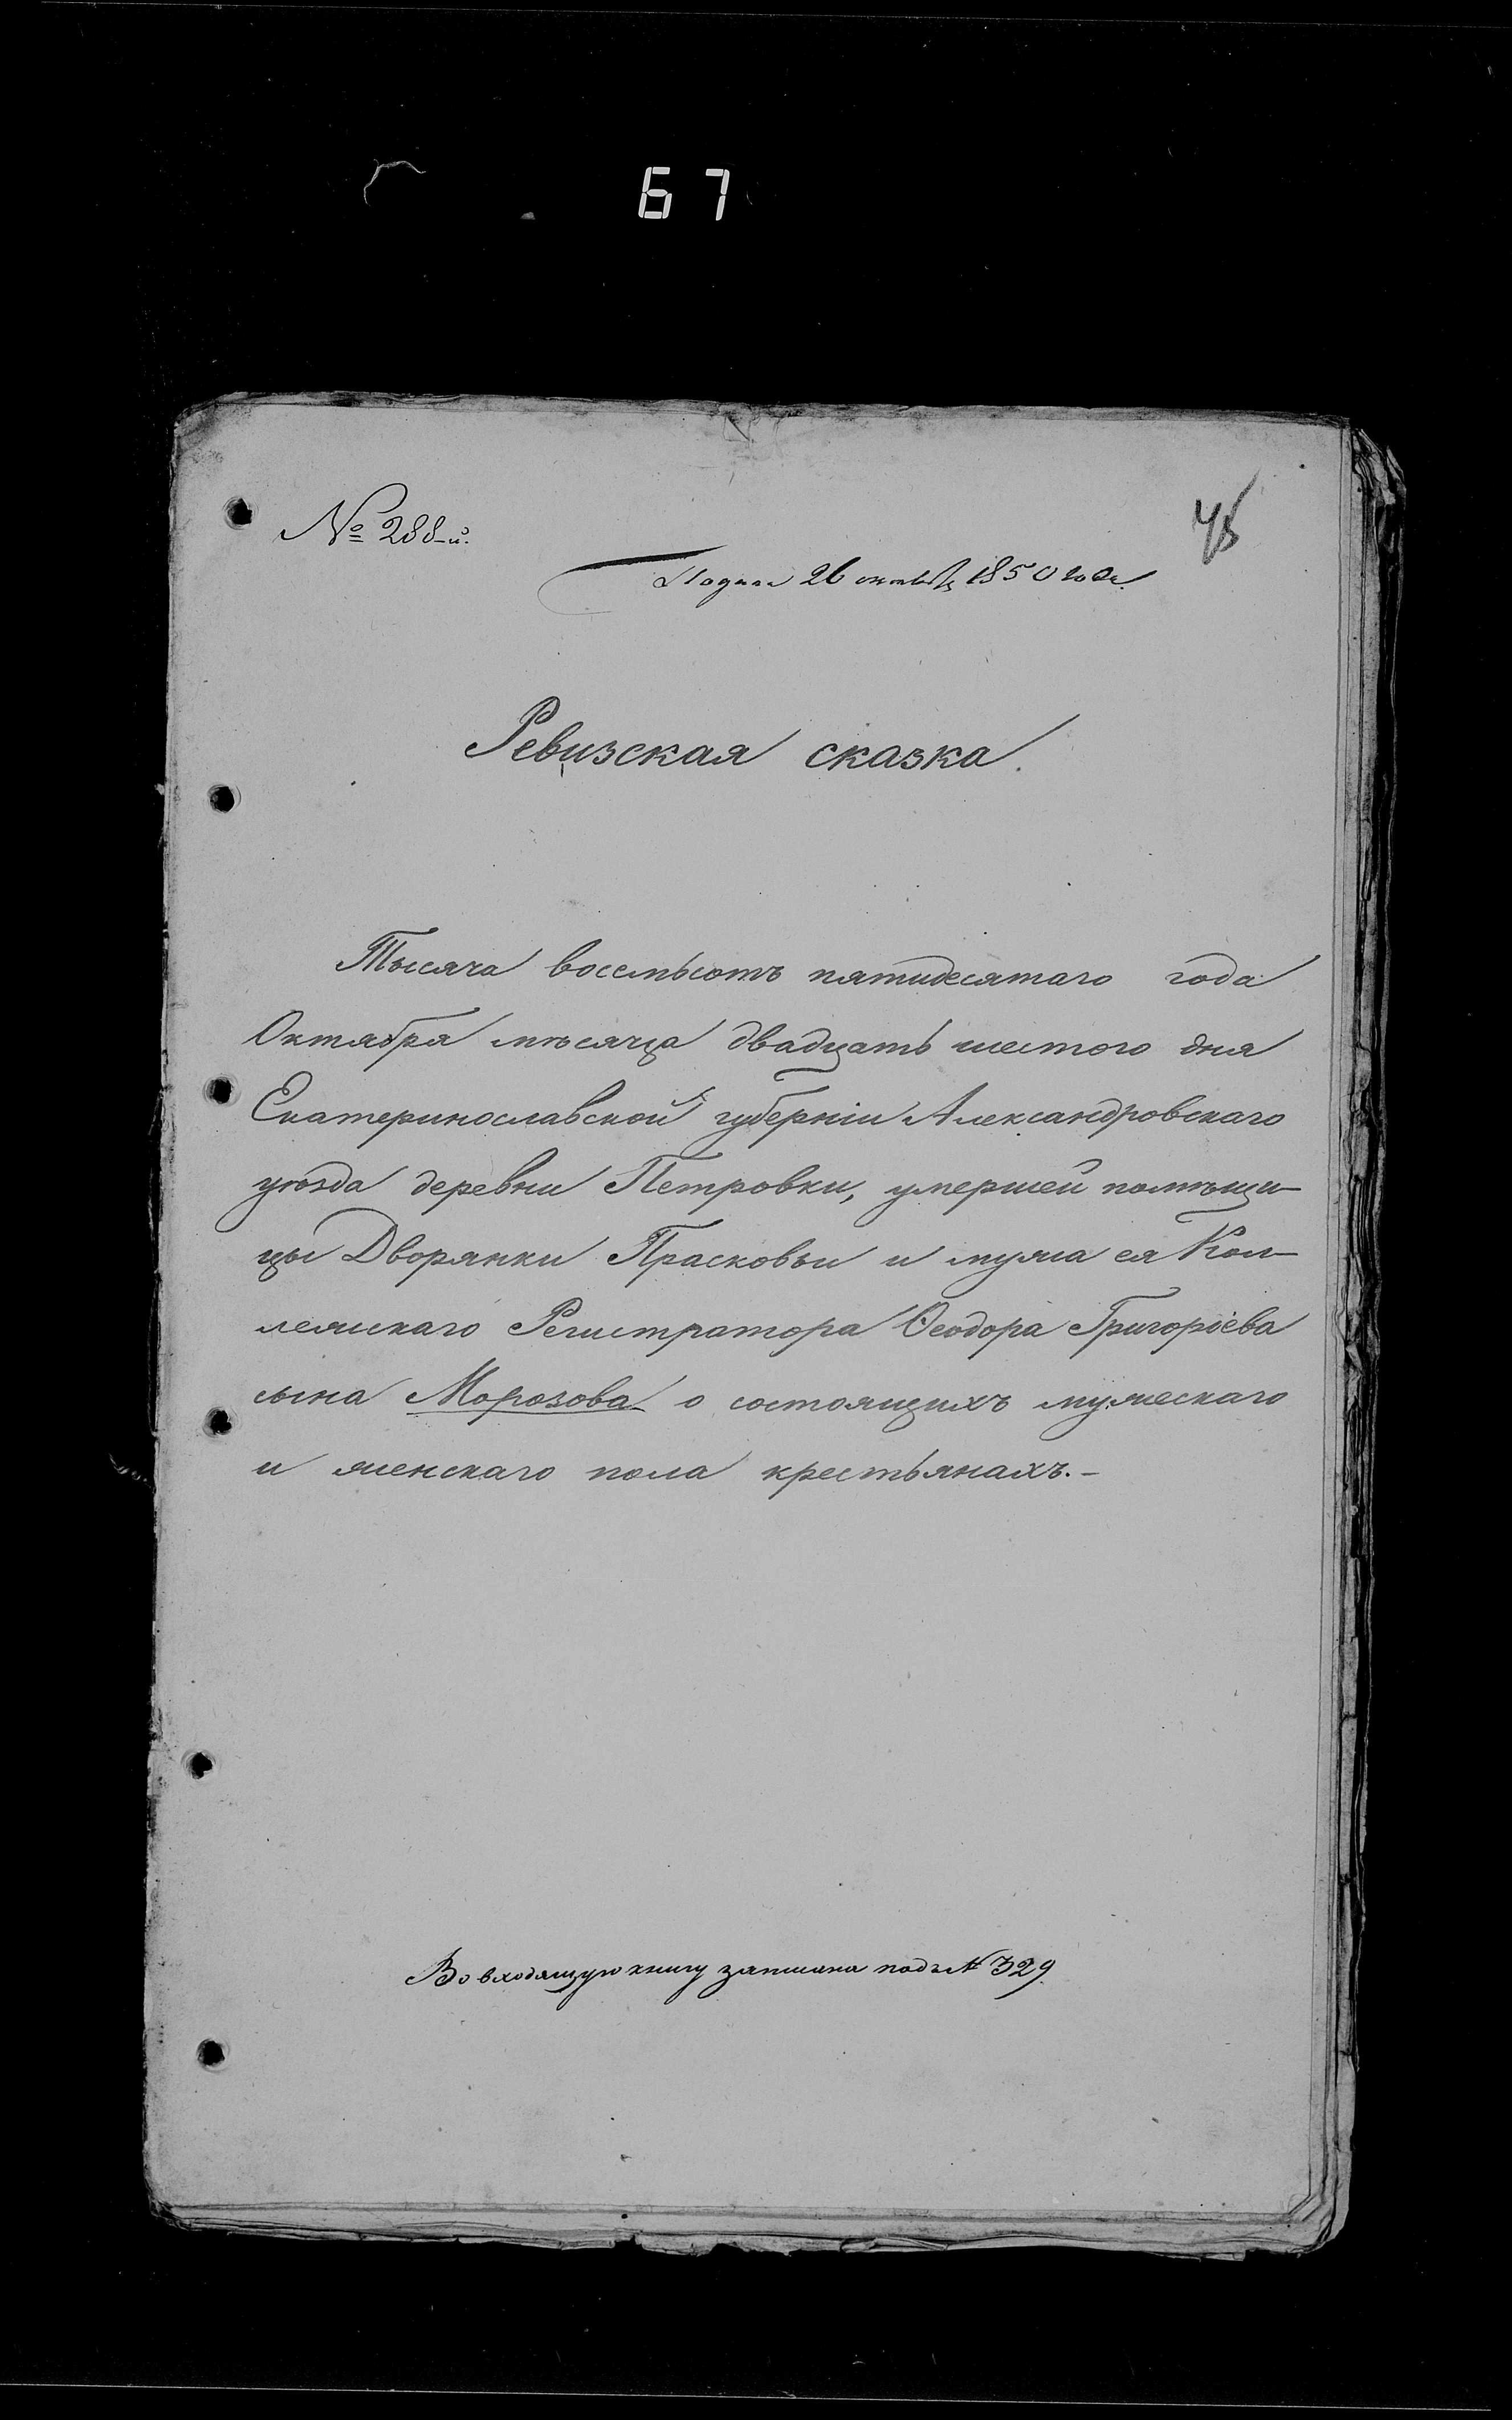 67
№ 288-й.
45
Подана 26 октября 1850 года.
Ревизская сказка.
Тысяча восемьсотъ пятидесятаго года
Октября мѣсяца двадцать шестого дня
Екатеринославской губерніи Александровскаго
уѣзда деревни Петровки, умершей помѣщи-
цы Дворянки Прасковьи и мужа ея Кол-
лежскаго Регистратора Ѳеодора Григоріева
сына Морозова о состоящихъ мужескаго
и женскаго пола крестьянахъ.-
Во входящую книгу записана подъ № 329.